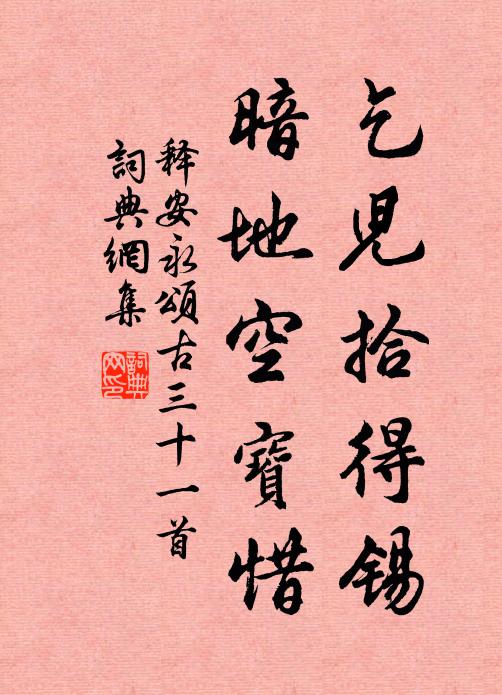 乞児拾得锡
暗地空寶惜
释安永頌古三十一首
詞典網集
詞典網印